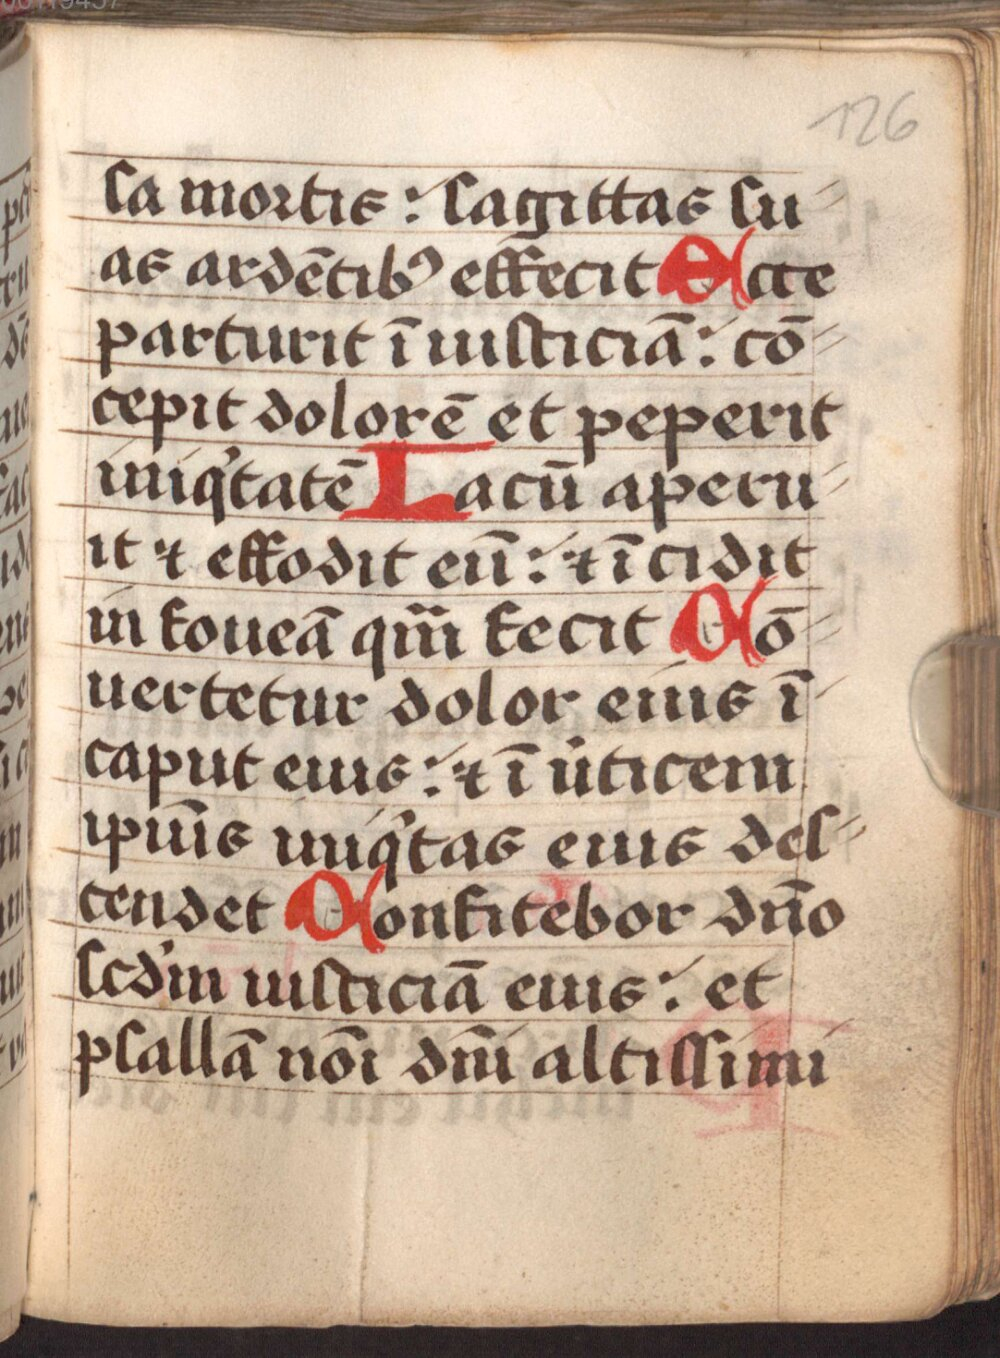 126
sa mortis : sagittas su⸗
as ardētibꝰ effecit Ecce
parturit ī iusticiā : cō⸗
cepit dolorē et peperit
iniqͥtatē Lacū aperu⸗
it ⁊ effodit eū : ⁊ īcidit
in foueā qm̄ fecit Cō⸗
uertetur dolor eius ī⸗
caput eius : ⁊ ī ũticem
ipiūs iniqͥtas eius des⸗
cendet Confitebor dn̄o
scd̓m iusticiā eius : et
psallā nōi dn̄i altissimi